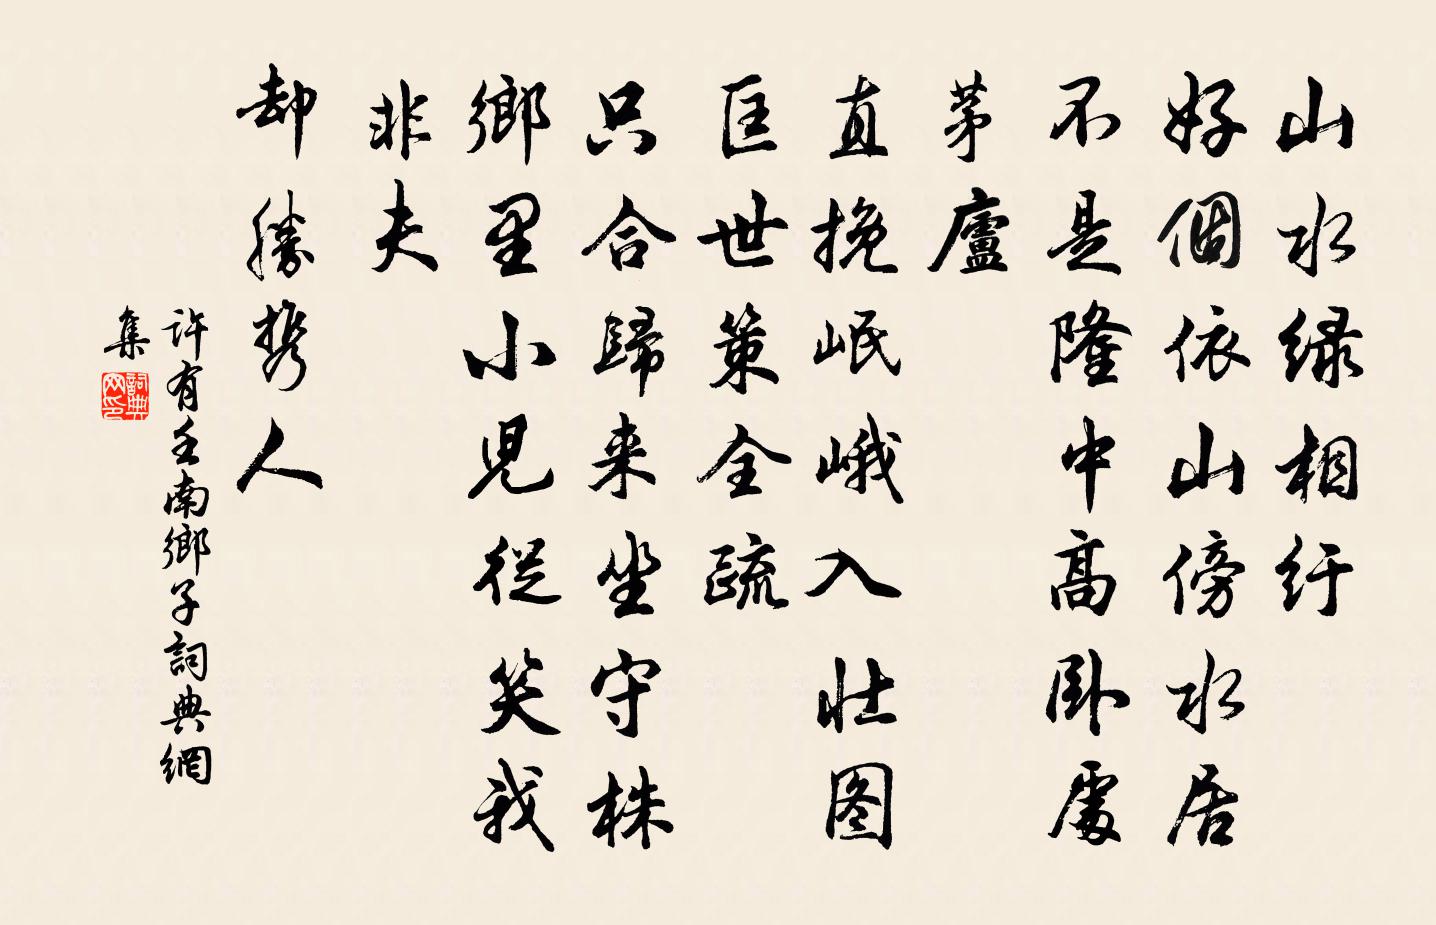 山水绿相纡
好個依山傍水居
不是隆中高卧處
茅廬
直挽岷峨入壮图
匡世策全疏
只合歸来坐守株
鄉里小児從笑我
非夫
却勝携人
許有壬南鄉子詞典網
集
詞典网印